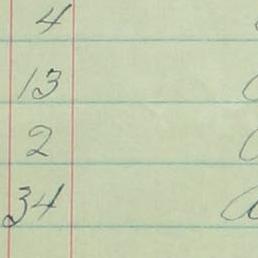 4
13
2
34